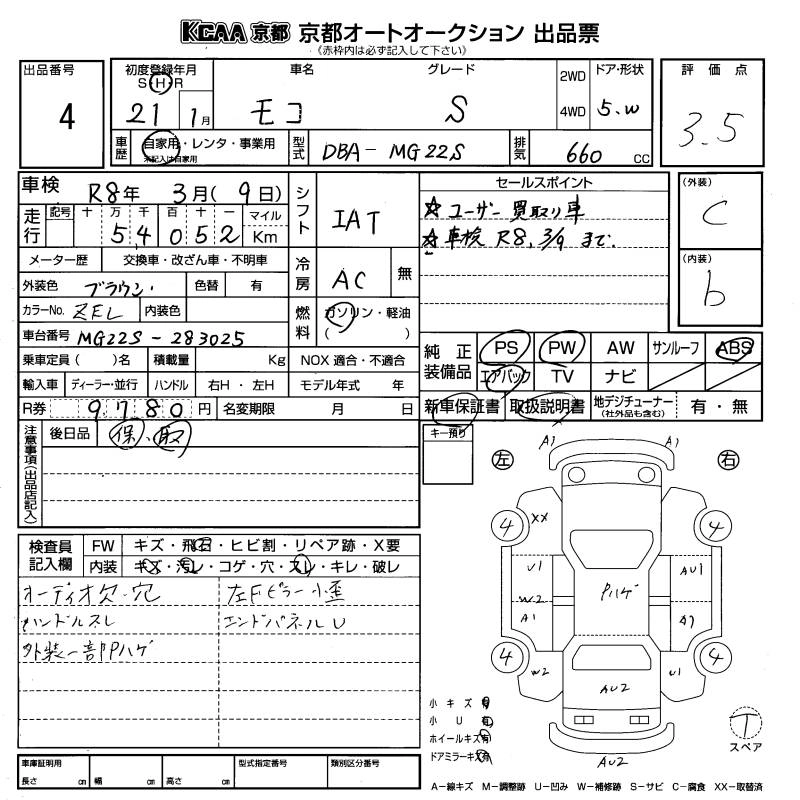 KCAA 京都 京都オートオークション 出品票
(赤枠内は必ず記入して下さい)
出品番号 4
初度登録年月 S・H・R 21年 1月
車名 モコ
グレード S
2WD 4WD
ドア・形状 5.W
評価点 3.5
車歴 自家用・レンタ・事業用
未記入は自家用
型式 DBA-MG22S
排気 660 CC
車検 R8年 3月(9日)
走行 記号 十 万 千 百 十 一 マイル
54052 Km
シフト IAT
セールスポイント
☆ユーザー買取り車
☆車検 R8,3/9 まで.
(外装) C
(内装) b
メーター歴 交換車・改ざん車・不明車
外装色 ブラウン 色替 有
冷房 AC 無
カラーNo. ZEL 内装色
燃料 ガソリン・軽油
( )
車台番号 MG22S-283025
乗車定員( )名 積載量 Kg NOX 適合・不適合
輸入車 ディーラー・並行 ハンドル 右H・左H モデル年式 年
R券 9780円 名変期限 月 日
純正装備品 PS PW AW サンルーフ ABS
エアバック TV ナビ
新車保証書 取扱説明書 地デジチューナー(社外品も含む) 有・無
注意事項(出品店記入)
後日品 保、取
キー預り
検査員記入欄 FW キズ・飛石・ヒビ割・リペア跡・X要
内装 キズ・汚レ・コゲ・穴・スレ・キレ・破レ
オーディオ欠・穴 左Fピラー小歪
ハンドルスレ エンドパネルU
外装一部Pハゲ
左 右
A1 A1
4 XX 4
U1 AU1
W2 Pハゲ
A1 A1
4 W2 U1 4
AU2
AU2
小キズ 有
小U 有
ホイールキズ 有
ドアミラーキズ 有
T
スペア
車庫証明用 長さ cm 幅 cm 高さ cm 型式指定番号 類別区分番号
A-線キズ M-調整跡 U-凹み W-補修跡 S-サビ C-腐食 XX-取替済